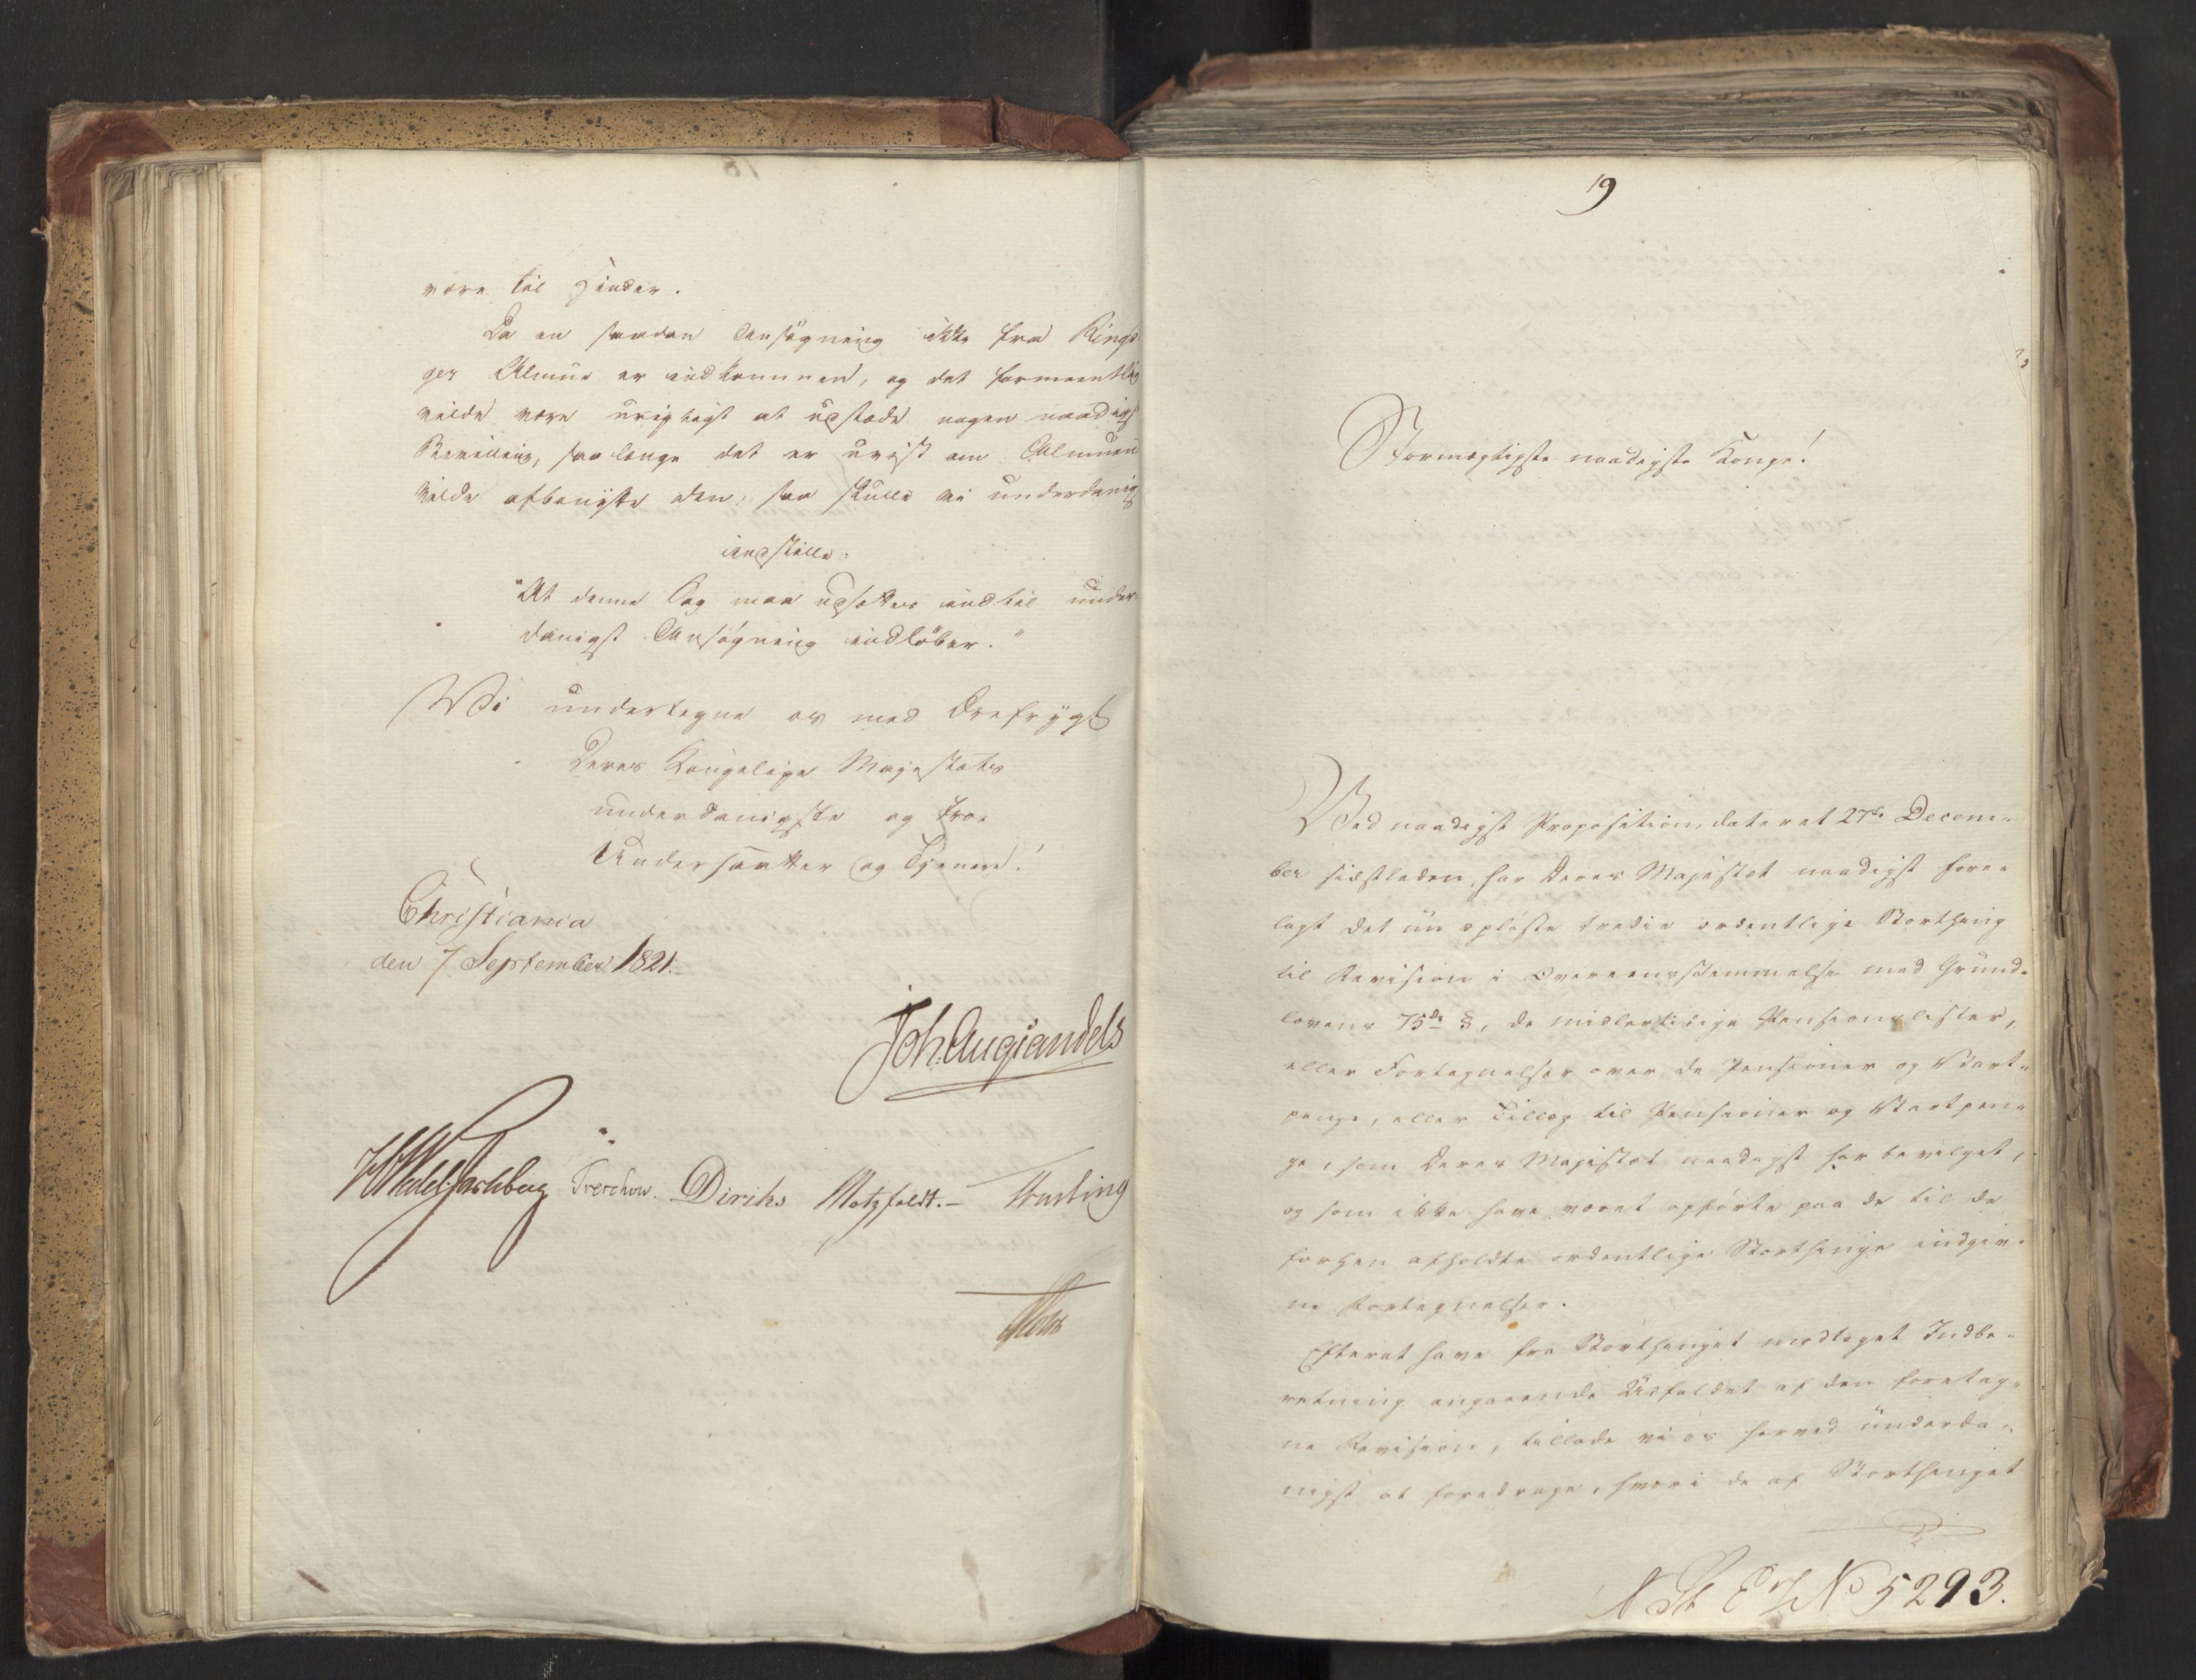 være til Hinder.
Da en saadan Ansøgning ikke fra Ring
ger Almue er indkommen, og det formeentlig
vilde være urigtigt at udstæde nogen naadigst
Bevilling, saa længe det er uvist om Almuen
vilde afbenytte den, saa skulle vi underdanigst
indstille:
"At denne Sag maa udsættes indtil under-
danigst Ansøgning indløber."
Vi undertegne os med Ærefrygt
Deres Kongelige Majestæts
underdanigste og troe
Undersaatter og Tjenere!
Christiania
den 7 September 1821.
Joh. Aug Sandels
HWedel Jarlsberg Treschow. Diriks Motzfeldt.- Krefting
Holst
19
Stormægtigste naadigste Konge!
Ved naadigst Proposition, dateret 27de Decem-
ber sidstleden, har Deres Majestæt naadigst fore-
lagt det nu opløste tredie ordentlige Storthing
til Revision i Overeensstemmelse med Grund-
lovens 75de §, de midlertidige Pensionslister,
eller Fortegnelser over de Pensioner og Vart-
penge, eller Tillæg til Pensioner og Vartpen-
ge, som Deres Majestæt naadigst har bevilget,
og som ikke have været opførte paa de til de
forhen afholdte ordentlige Storthinge indgiv-
ne Fortegnelser.
Efterat have fra Storthinget modtaget Indbe-
retning angaaende Udfaldet af den foretag-
ne Revision, tillade vi os herved underda-
nigst at foredrage, hvori de af Storthinget
N St E No 5293.